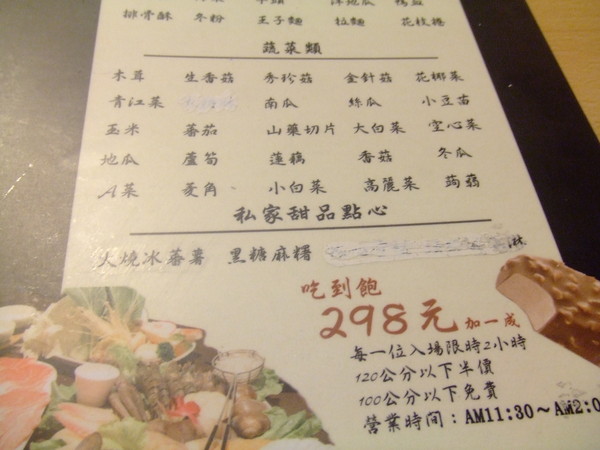 排骨酥 冬粉 王子麵 拉麵 花枝捲
蔬菜類
木茸 生香菇 秀珍菇 金針菇 花椰菜
青江菜 南瓜 絲瓜 小豆苗
玉米 蕃茄 山藥切片 大白菜 空心菜
地瓜 蘆筍 蓮藕 香菇 冬瓜
A菜 菱角 小白菜 高麗菜 蒟蒻
私家甜品點心
火燒冰蕃薯 黑糖麻糬
吃到飽
298元 加一成
每一位入場限時2小時
120公分以下半價
100公分以下免費
營業時間：AM11:30～AM2:0